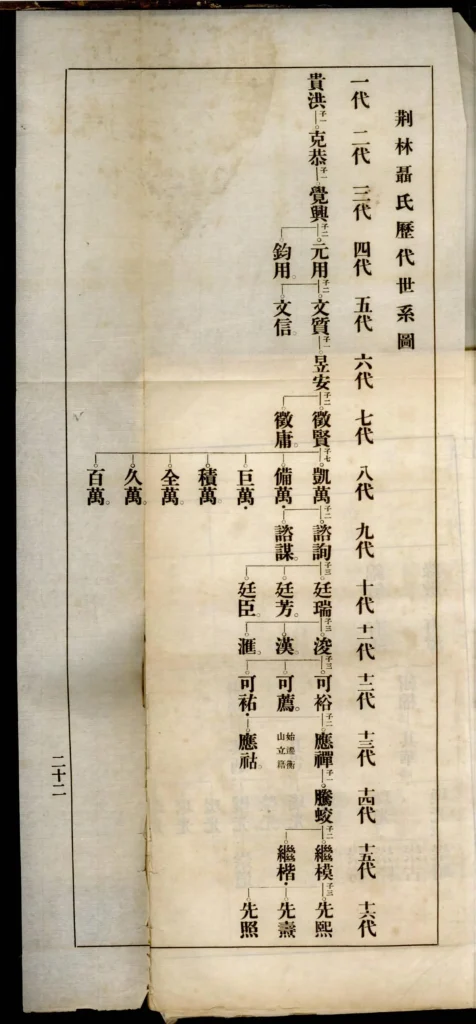 荆林聶氏歷代世系圖
一代 二代 三代 四代 五代 六代 七代 八代 九代 十代 十一代 十二代 十三代 十四代 十五代 十六代
貴洪 子一 克恭 子一 覺興 子二 元用 子二 文質 子一 昱安 子二 徵賢 子七 凱萬 子二 諮詢 子三 廷瑞 子三 浚 子三 可裕 子二 應禪 子一 騰蛟 子二 繼模 子三 先熙
鈞用 文信 徵庸 備萬 諮謀 廷芳 漢 可薦 始遷衡山立籍 繼楷 先燾
巨萬 廷臣 滙 可祐 應祜 先照
積萬
全萬
久萬
百萬
二十二